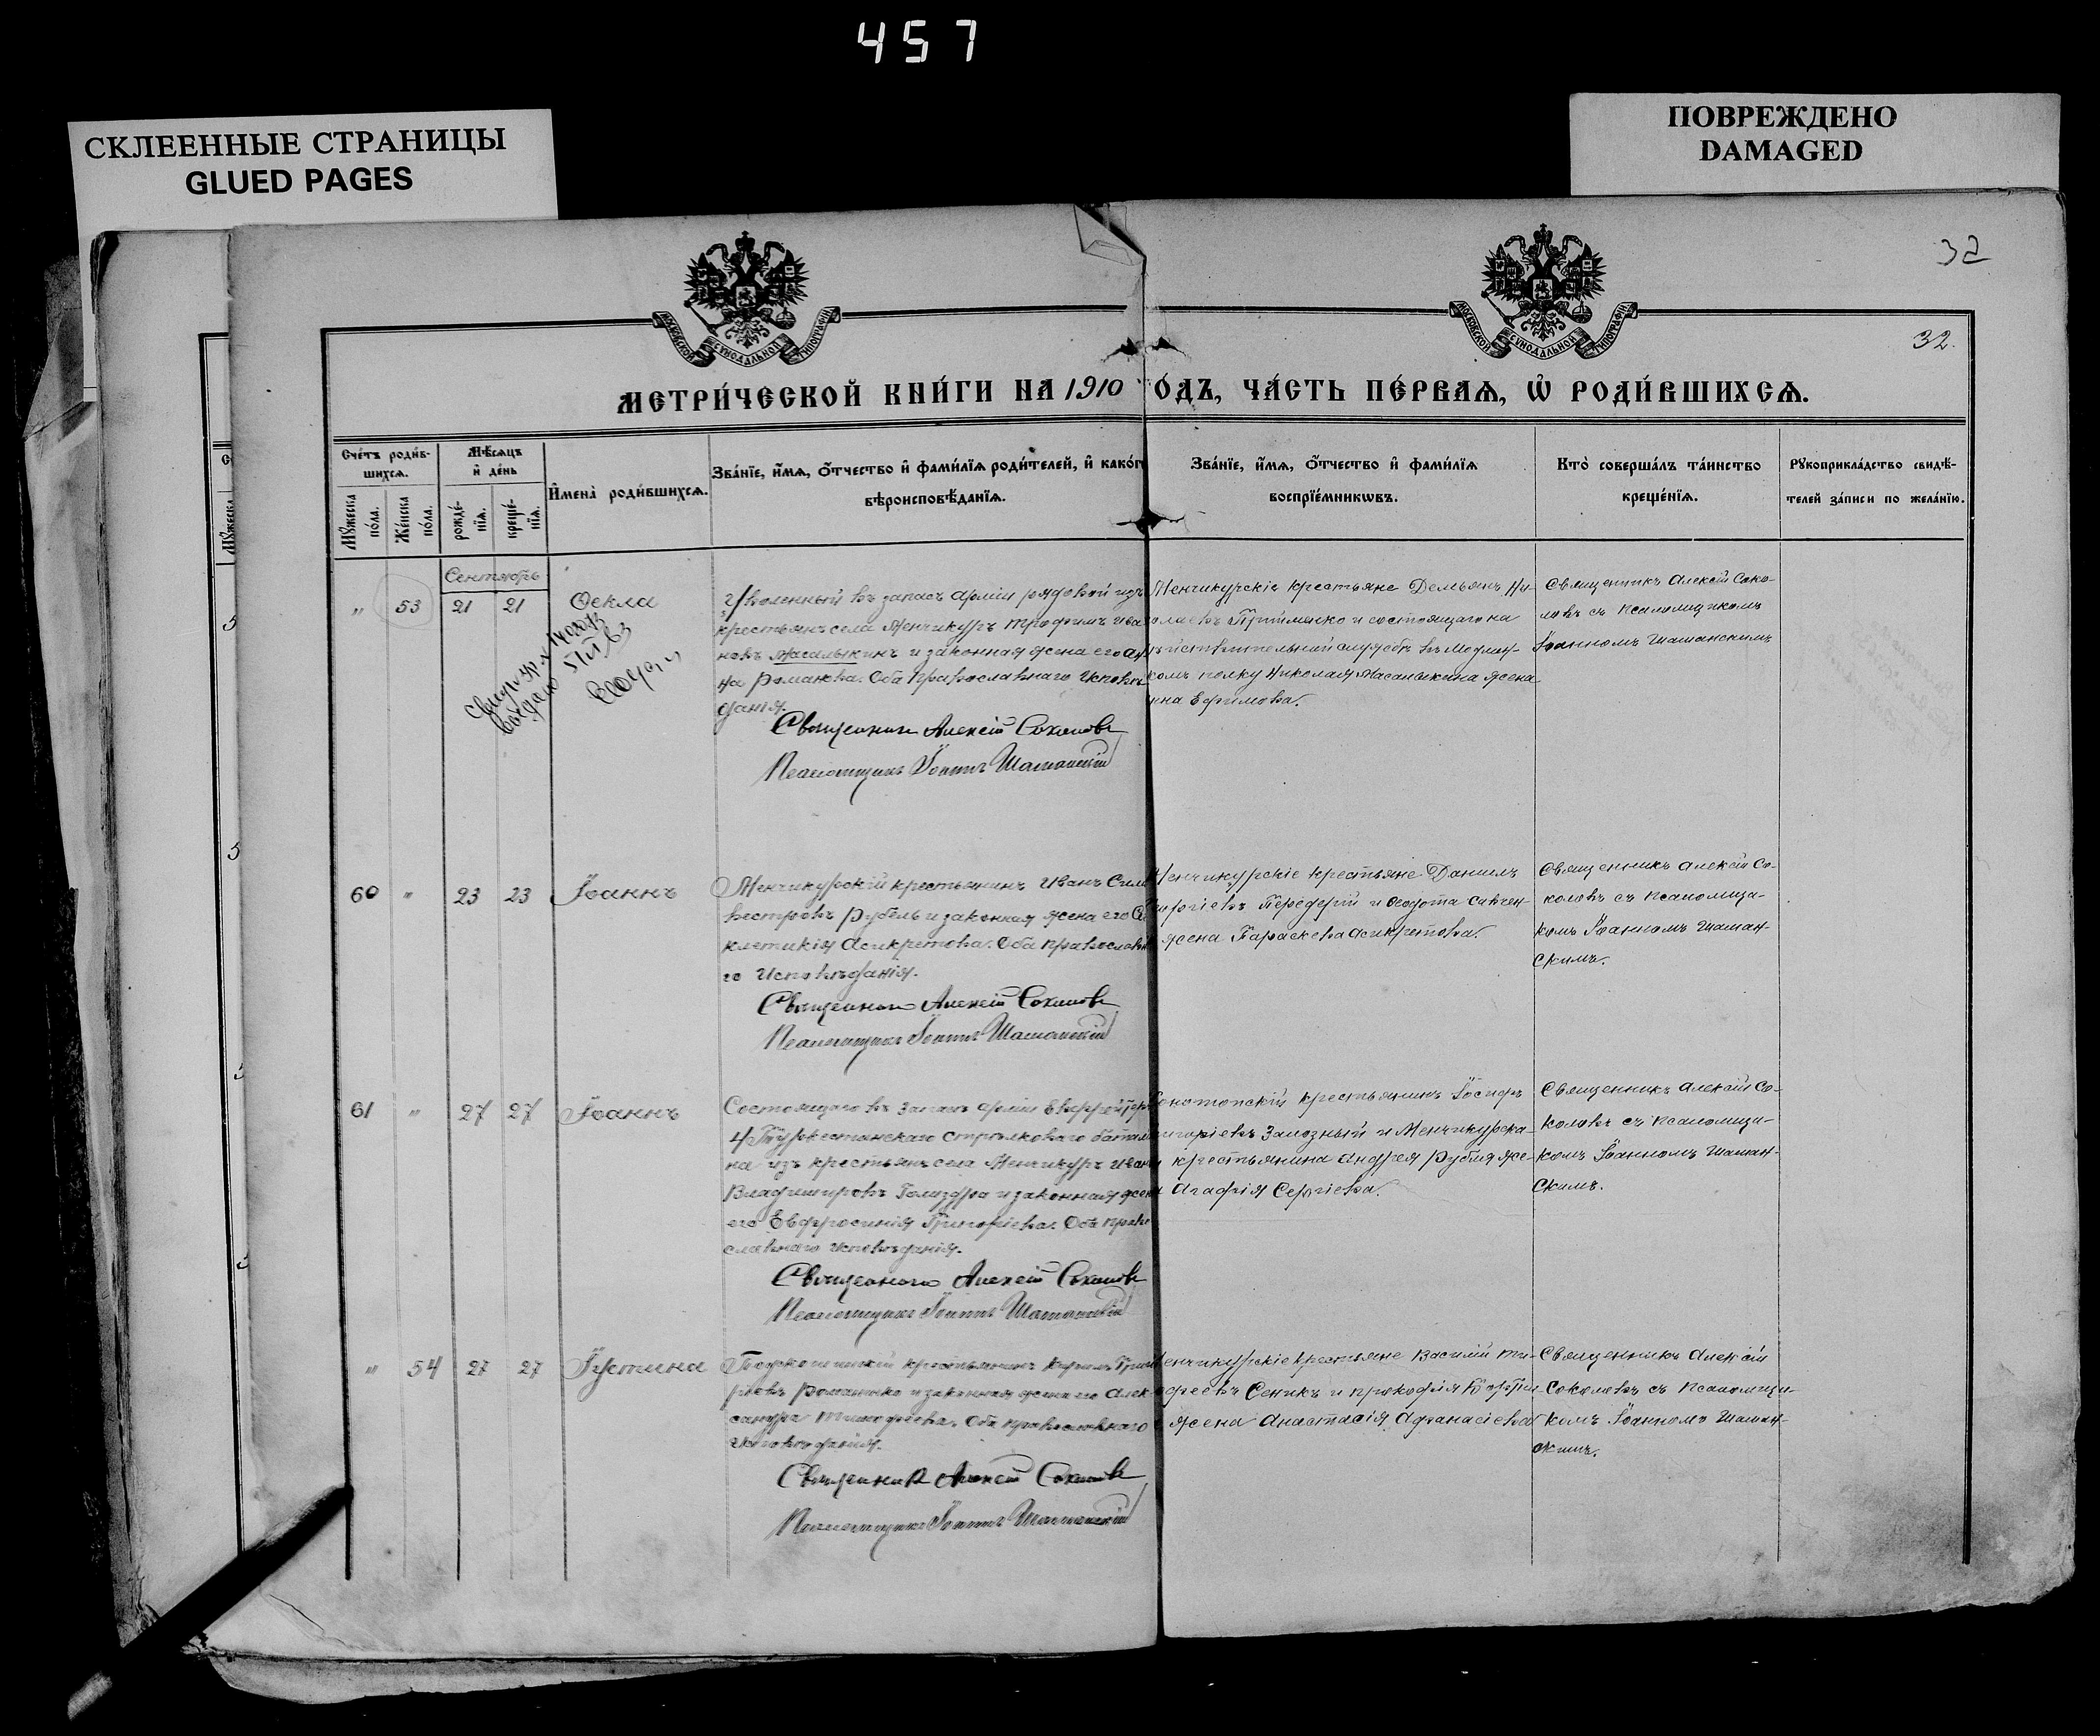 457
СКЛЕЕННЫЕ СТРАНИЦЫ
GLUED PAGES
ПОВРЕЖДЕНО
DAMAGED
32
МОСКОВСКОЙ СѴНОДАЛЬНОЙ ТИПОГРАФІИ
МОСКОВСКОЙ СѴНОДАЛЬНОЙ ТИПОГРАФІИ
32.
МЕТРИ́ЧЕСКОЙ КНИ́ГИ НА 1910 ГО́ДЪ, ЧА́СТЬ ПЕ́РВАѦ, Ѡ҆ РОДИ́ВШИХСѦ.
Сче́тъ роди́в-
шихсѧ.
Мѣ́сѧцъ
и҆ де́нь
Мꙋ́жеска
по́ла.
Же́нска
по́ла.
рожде́-
нїѧ.
креще́-
нїѧ.
И҆мена̀ роди́вшихсѧ.
Зва́нїе, и҆́мѧ, ѻ҆́тчество и҆ фами́лїѧ роди́телей, и҆ како́г
вѣроисповѣ́данїѧ.
Зва́нїе, и҆́мѧ, ѻ҆́тчество и҆ фами́лїѧ
воспрїе́мникѡвъ.
Кто̀ соверша́лъ та́инство
креще́нїѧ.
Рꙋкоприкла́дство свидѣ́-
телей за́писи по жела́нїю.
Сентябрь
„ 53 21 21 Ѳекла
Уволенный въ запасъ арміи рядовой изъ
крестьянъ села Менчикуръ Трофимъ Ива
новъ Масалыкинъ и законная жена его Ан
на Романова. Оба православнаго исповѣ
данія.
Священникъ Алексій Соколовъ
Псаломщикъ Іоаннъ Шаманскій
Менчикурскіе крестьяне Демьянъ Ни-
олаевъ Приймако и состоящаго на
ѣйствительной службѣ въ
комъ полку Николая Масалыкина жена
нна Ефимова.
Священникъ Алексій Соко-
ловъ съ псаломщикомъ
Іоанномъ Шаманскимъ
60 „ 23 23 Іоаннъ
Менчикурскій крестьянинъ Иванъ Силь
вестровъ Рубель и законная жена его Син
клитикія Асикритова. Оба православна
го исповѣданія.
Священникъ Алексій Соколовъ
Псаломщикъ Іоаннъ Шаманскій
Менчикурскіе крестьяне Даніилъ
Передерій и Ѳедота Савчен-
жена Параскева Асикритова.
Священникъ Алексій Со-
коловъ съ псаломщи-
комъ Іоанномъ Шаман-
скимъ.
61 „ 27 27 Іоаннъ
Состоящаго въ запасѣ арміи Ефрейтора
4 Туркестанскаго стрѣлковаго баталіо
на изъ крестьянъ села Менчикуръ Иванъ
Владиміровъ Голиздра и законная жена
его Евфросинія Григорьева. Оба право
славнаго исповѣданія.
Священникъ Алексій Соколовъ
Псаломщикъ Іоаннъ Шаманскій
Конотопскій крестьянинъ Іосифъ
ригоріевъ Залозный и Менчикурска-
крестьянина Андрея Рубля же-
а Агафія Сергіева.
Священникъ Алексій Со-
коловъ съ псаломщи-
комъ Іоанномъ Шаман-
скимъ.
„ 54 27 27 Іустина
крестьянинъ Кириллъ Григо
рьевъ Романько и законная жена его Алек
сандра Тимофеева. Оба православнаго
исповѣданія.
Священникъ Алексій Соколовъ
Псаломщикъ Іоаннъ Шаманскій
Менчикурскіе крестьяне Василій Ти-
офеевъ Сеникъ и Прокофія
жена Анастасія Афанасіева
Священникъ Алексій
Соколовъ съ псаломщи-
комъ Іоанномъ Шаман-
скимъ.